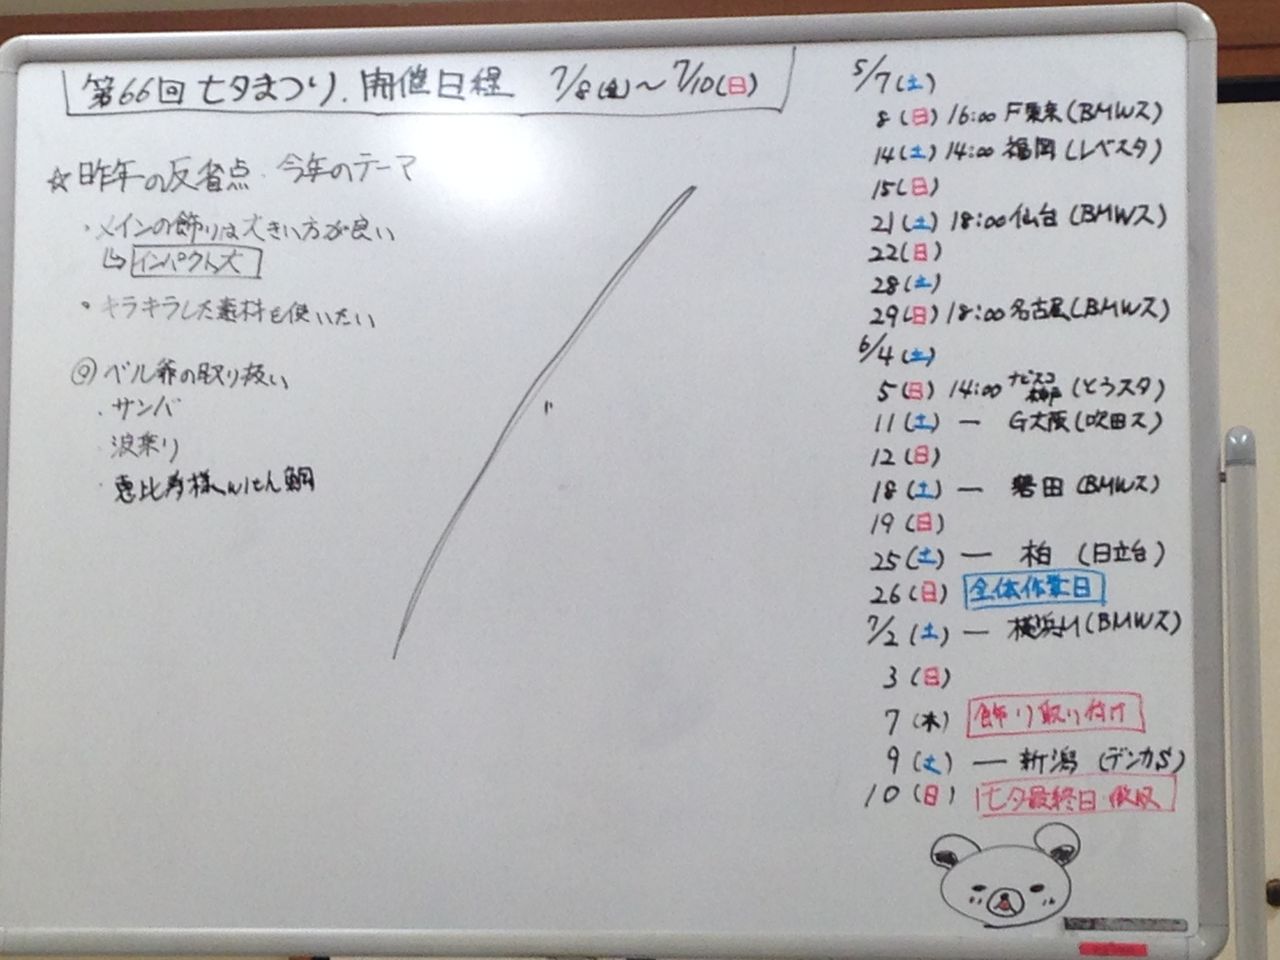 第66回 七夕まつり. 開催日程 7/8(金)～7/10(日)
☆昨年の反省点. 今年のテーマ
・メインの飾りは大きい方が良い
↳インパクト大
・キラキラした素材も使いたい
◎ベル爺の取り扱い
・サンバ
・波乗り
・恵比寿様
鯛
5/7(土)
8(日) 16:00 F東京(BMWス)
14(土) 14:00 福岡(レベスタ)
15(日)
21(土) 18:00 仙台(BMWス)
22(日)
28(土)
29(日) 18:00 名古屋(BMWス)
6/4(土)
5(日) 14:00 ナビスコ神戸(とうスタ)
11(土) ― G大阪(吹田ス)
12(日)
18(土) ― 磐田(BMWス)
19(日)
25(土) ― 柏(日立台)
26(日) 全体作業日
7/2(土) ― 横浜M(BMWス)
3(日)
7(木) 飾り取り付け
9(土) ― 新潟(デンカS)
10(日) 七夕最終日・撤収